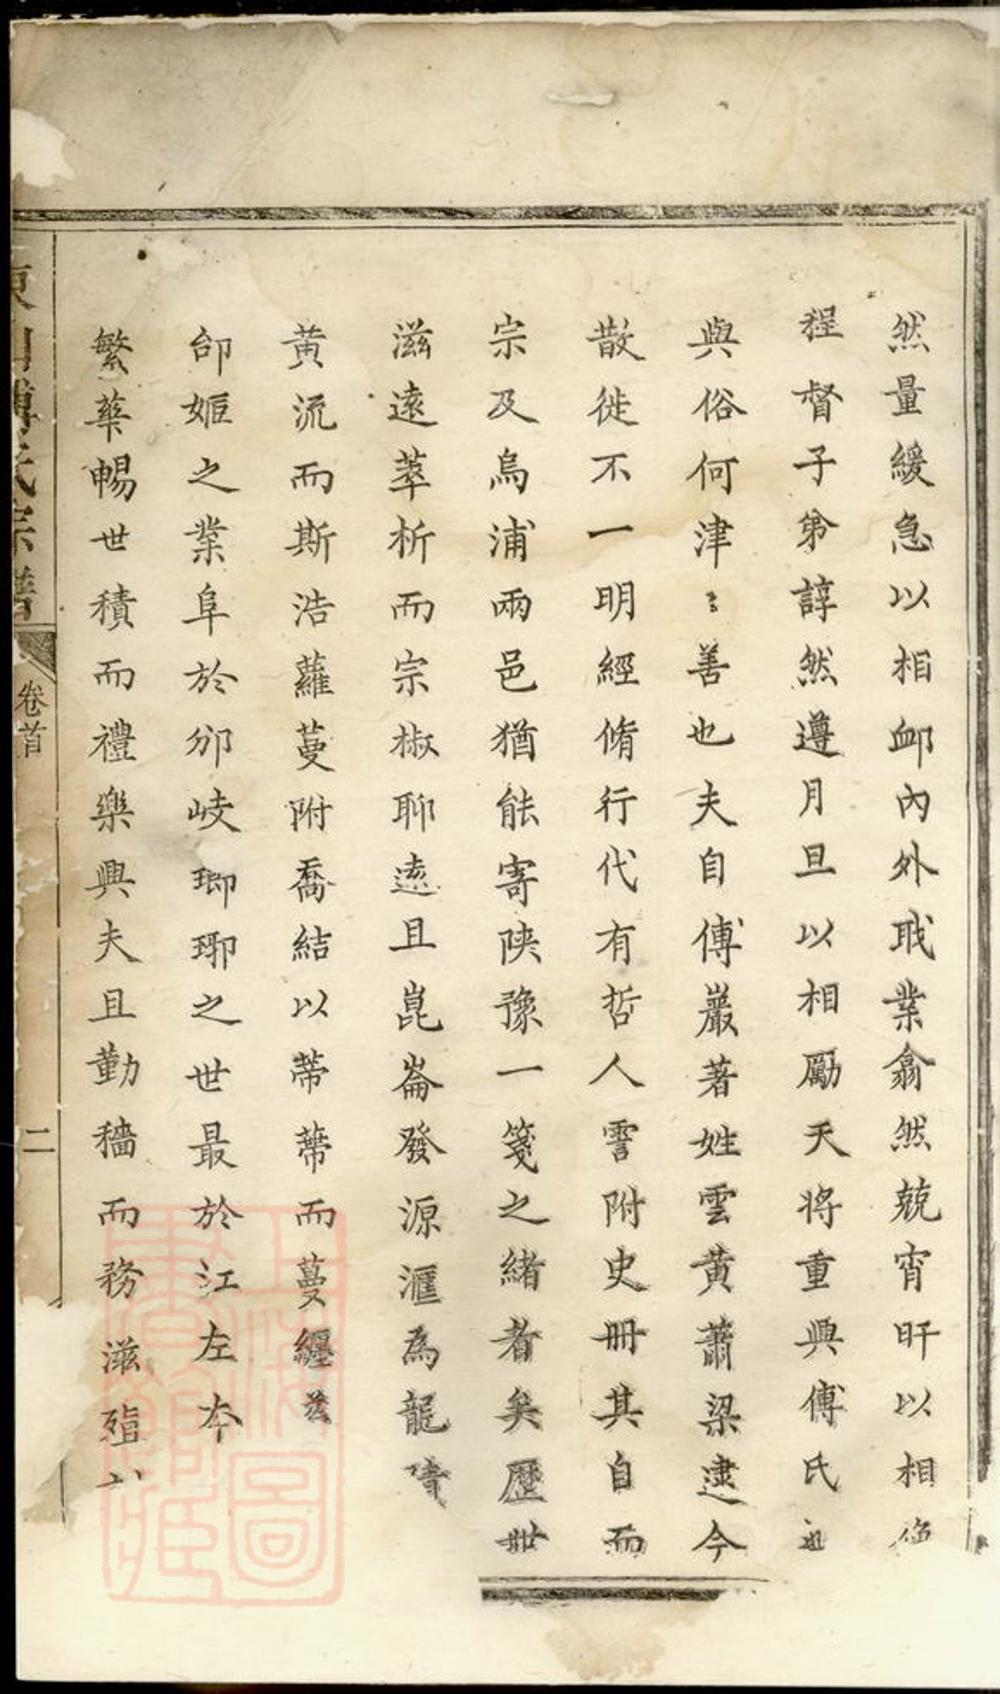 然量緩急以相卹內外戢業翕然兢宵旰以相
程督子弟諄然遵月旦以相勵天將重興傅氏
與俗何津〻善也夫自傅巖著姓雲黃蕭梁逮今
散徙不一明經脩行代有哲人霅附史冊其自而
宗及烏浦兩邑猶能寄陝豫一箋之緒者矣歷世
滋遠萃析而宗椒聊遠且崑崙發源滙為龍
黃流而斯浩蘿蔓附喬結以蒂蒂而蔓纏
邰姬之業阜於邠岐瑯琊之世最於江左本
繁華暢世積而禮樂興夫且勤穡而務滋殖
東山傅氏宗譜
卷首
二
上海圖書館藏